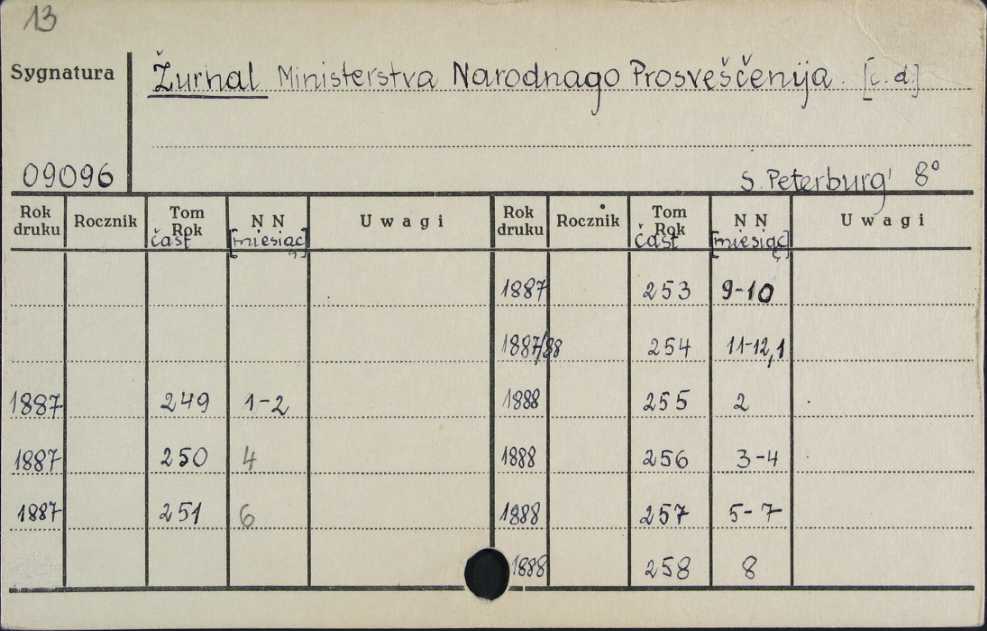 13
Sygnatura
Žurnal Ministerstva Narodnago Prosveščenija. [c.d.]
09096
S. Peterburg' 8°
Rok druku Rocznik Tom Rok část N N [miesiąc] Uwagi Rok druku Rocznik Tom Rok część N N [miesiąc] Uwagi
1887 253 9-10
1887/88 254 11-12,1
1887 249 1-2 1888 255 2
1887 250 4 1888 256 3-4
1887 251 6 1888 257 5-7
1888 258 8